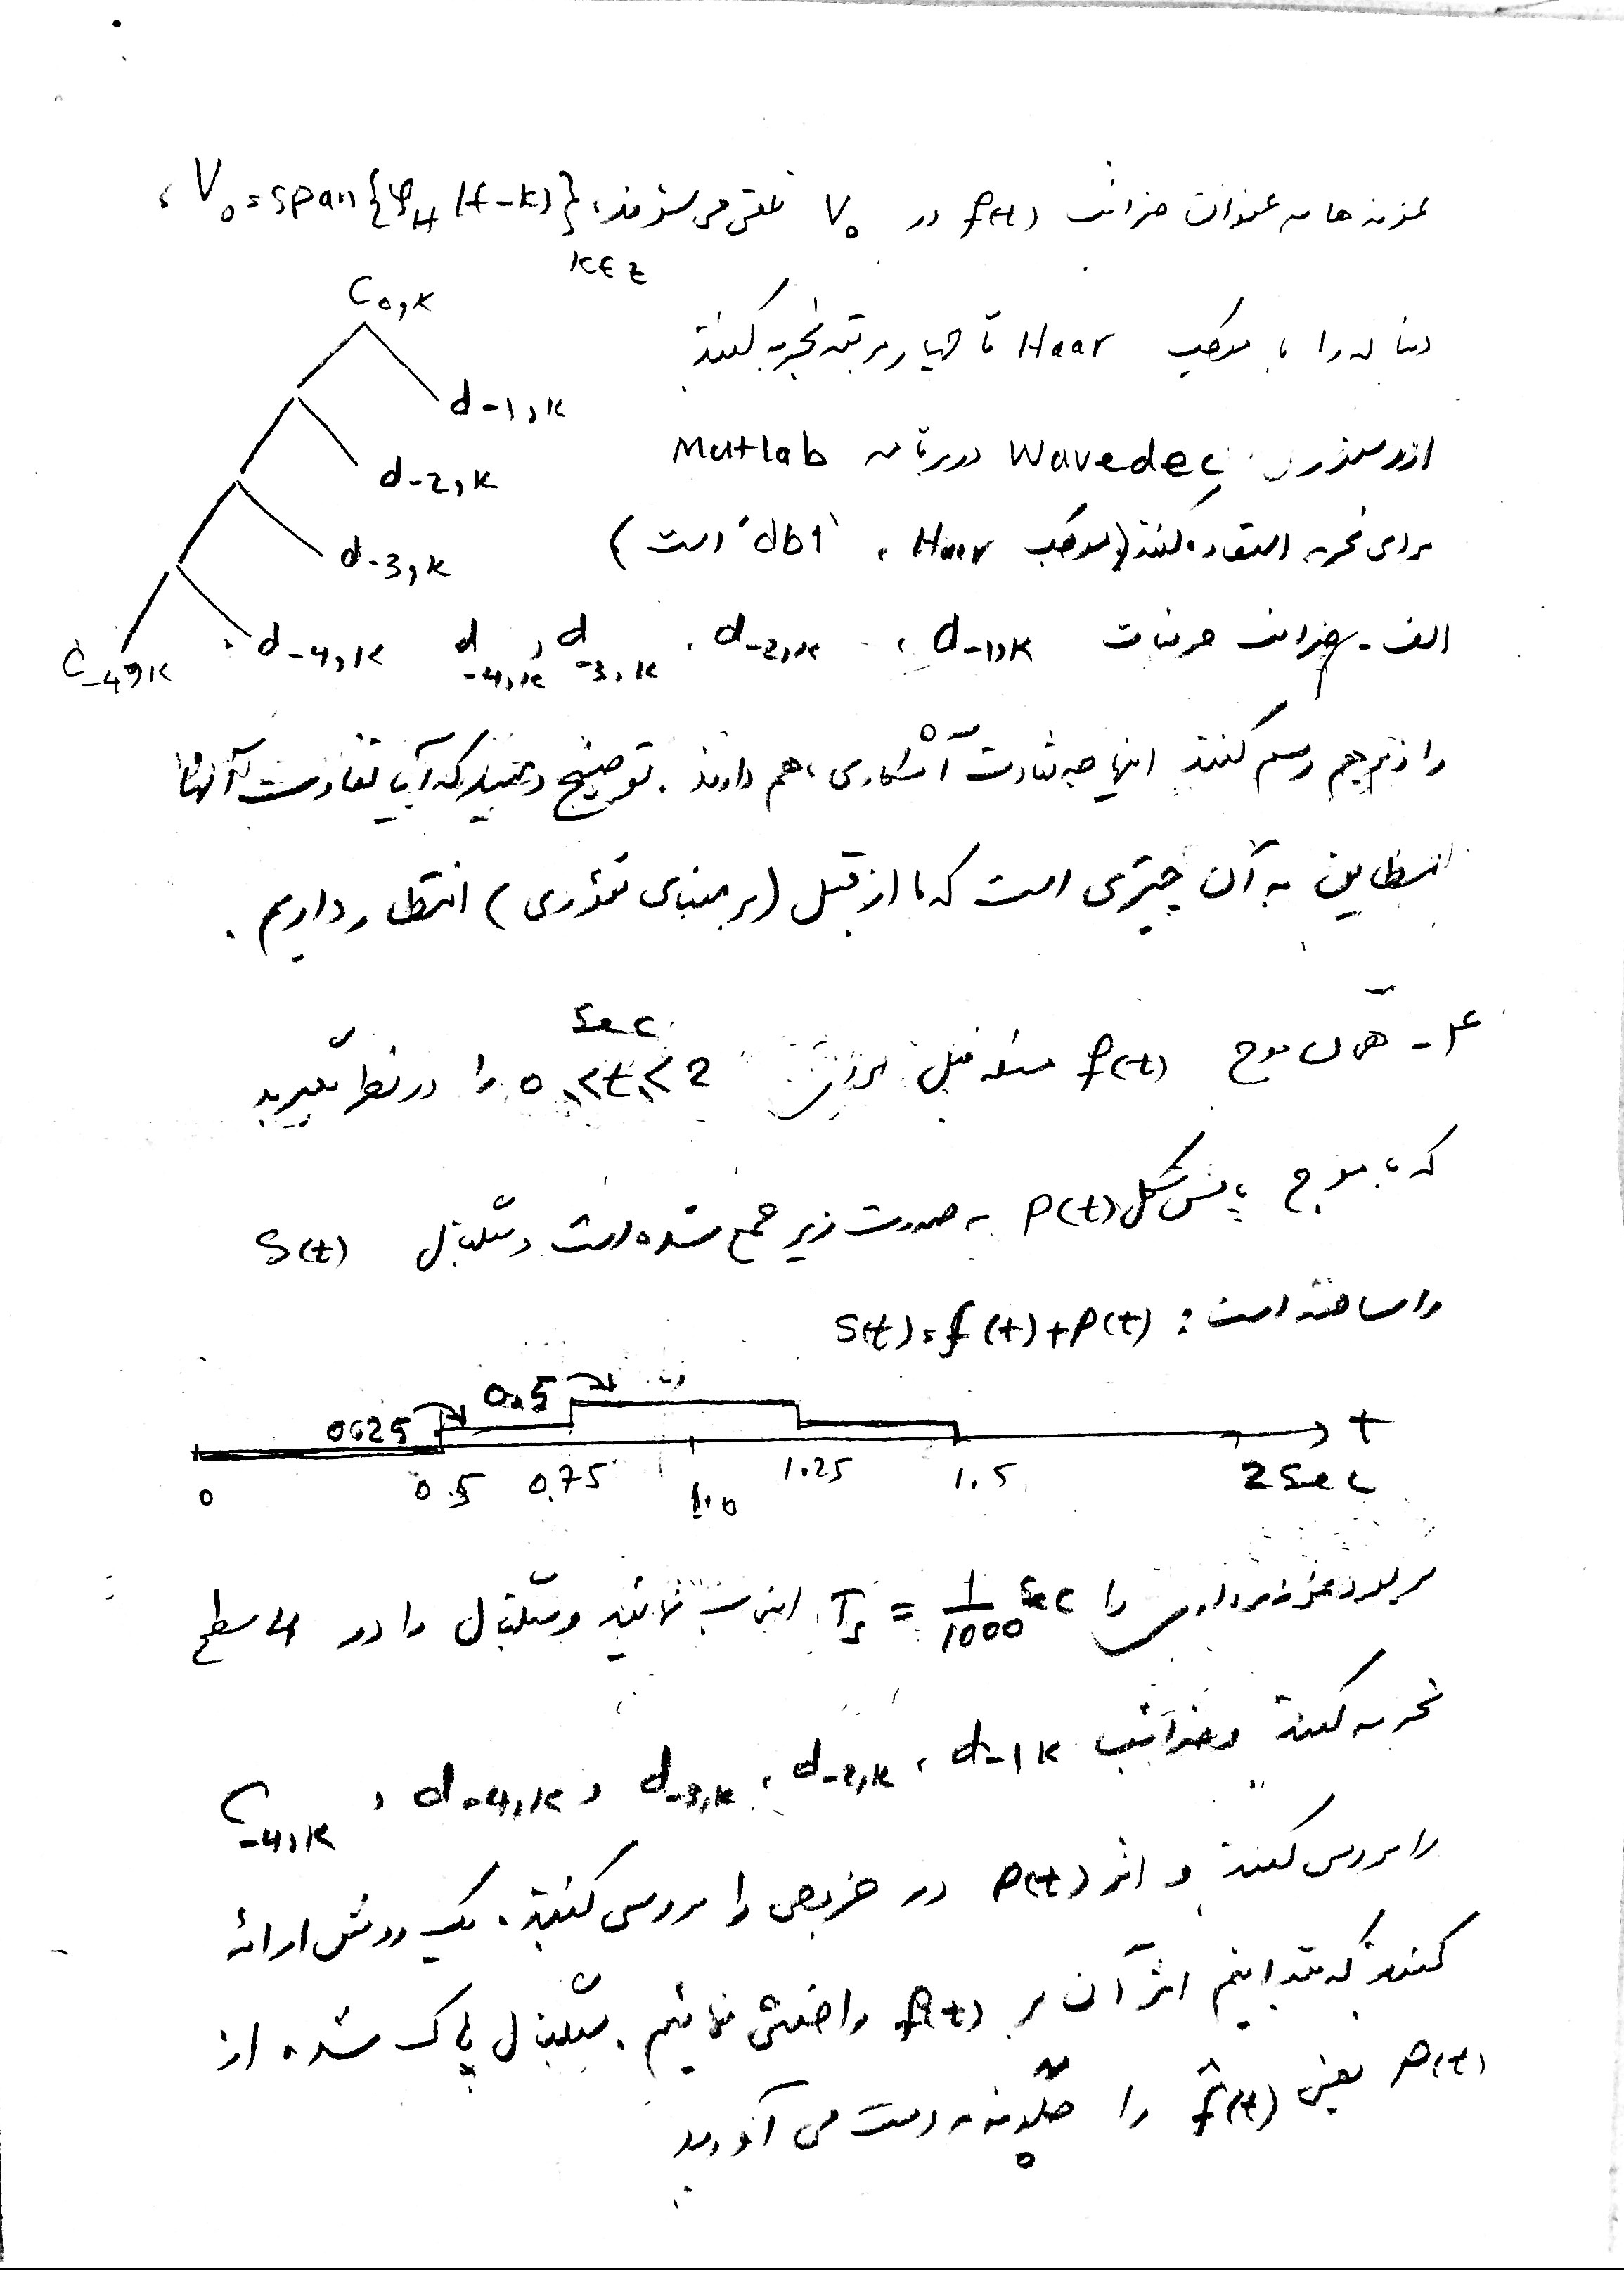 نمونه ها به عنوان ضرائب f(t) در V₀ تلقی می شوند، V₀ = span{φ_H(t-k)} k∈Z ،
C₀,k
دنباله را با موجک Haar تا چهار مرتبه تجزیه کنید
d-1,k
از دستور wavedec در برنامه Matlab
d-2,k
برای تجزیه استفاده کنید (موجک Haar ، 'db1' است)
d-3,k
الف - ضرائب جزئیات d-1,k ، d-2,k ، d-3,k ، d-4,k
d-4,k
C-4,k
را زیر هم رسم کنید اینها چه تفاوت آشکاری با هم دارند . توضیح دهید که آیا تفاوت آنها
به آن چیزی است که ما از قبل (بر مبنای تئوری) انتظار داریم .
۴ - همان موج f(t) مسئله قبل برای 0 ≤ t ≤ 2 sec را در نظر بگیرید
که با موج پالس شکل P(t) به صورت زیر جمع شده است و سیگنال S(t)
را ساخته است : S(t) = f(t) + P(t)
0.5
0.25
t
0 0.5 0.75 1.0 1.25 1.5 2 sec
پریود نمونه برداری را Ts = 1/1000 sec انتخاب نمائید و سیگنال را در ۴ سطح
تجزیه کنید و ضرائب d-1,k ، d-2,k ، d-3,k ، d-4,k ، C-4,k
را بررسی کنید و اثر P(t) در ضرایب را بررسی کنید . یک روش ارائه
کنید که بتوانیم اثر آن بر f(t) را خنثی نمائیم . سیگنال پاک شده از
P(t) یعنی f̂(t) را چگونه به دست می آورید